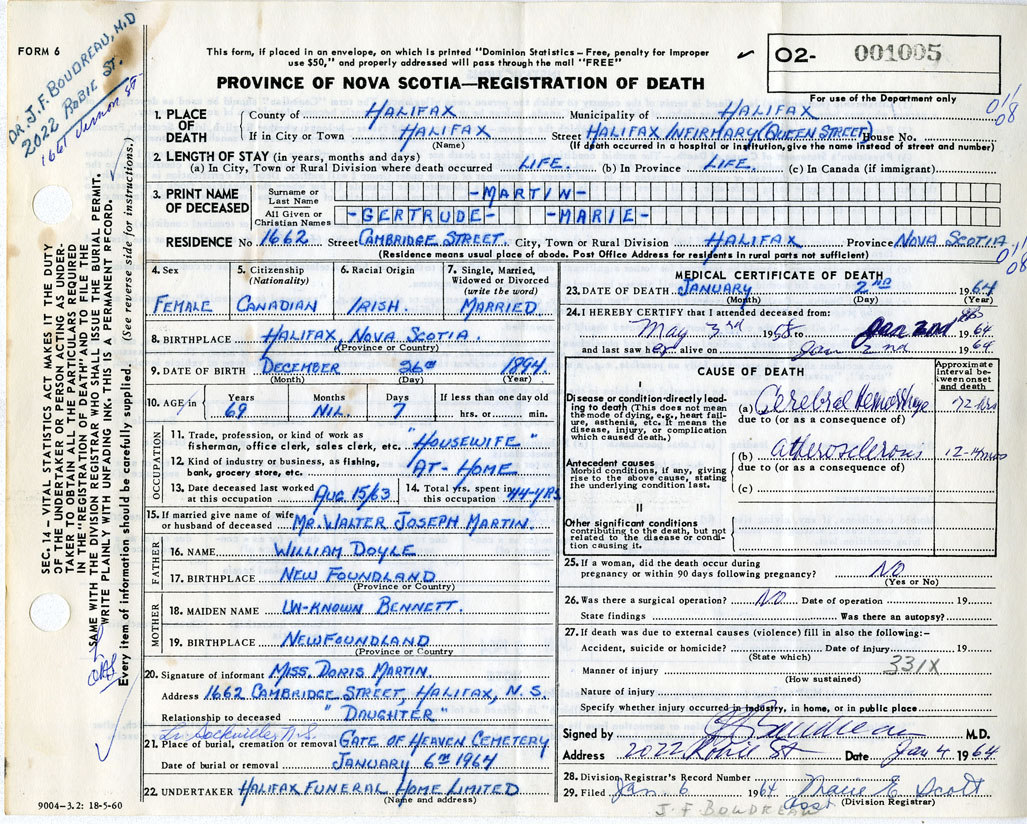 FORM 6
DR. J. F. BOUDREAU, M.D
2022 ROBIE ST.
1661 Vernon St
This form, if placed in an envelope, on which is printed "Dominion Statistics – Free, penalty for improper
use $50," and properly addressed will pass through the mail "FREE"
PROVINCE OF NOVA SCOTIA—REGISTRATION OF DEATH
O2- 001005
For use of the Department only
011
08
1. PLACE OF DEATH County of HALIFAX Municipality of HALIFAX
If in City or Town HALIFAX Street HALIFAX INFIRMARY (QUEEN STREET) House No.
(Name) (If death occurred in a hospital or institution, give the name instead of street and number)
2. LENGTH OF STAY (in years, months and days)
(a) In City, Town or Rural Division where death occurred LIFE. (b) In Province LIFE. (c) In Canada (if immigrant)
3. PRINT NAME OF DECEASED Surname or Last Name -MARTIN-
All Given or Christian Names -GERTRUDE- -MARIE-
RESIDENCE No 1662 Street CAMBRIDGE STREET. City, Town or Rural Division HALIFAX Province NOVA SCOTIA
(Residence means usual place of abode. Post Office Address for residents in rural parts not sufficient)
011
08
4. Sex 5. Citizenship (Nationality) 6. Racial Origin 7. Single, Married, Widowed or Divorced (write the word)
FEMALE CANADIAN IRISH. MARRIED
8. BIRTHPLACE HALIFAX, NOVA SCOTIA.
(Province or Country)
9. DATE OF BIRTH DECEMBER 26TH 1894.
(Month) (Day) (Year)
10. AGE in Years Months Days If less than one day old
69 NIL. 7 hrs. or min.
OCCUPATION
11. Trade, profession, or kind of work as
fisherman, office clerk, sales clerk, etc. "HOUSEWIFE"
12. Kind of industry or business, as fishing,
bank, grocery store, etc. AT-HOME
13. Date deceased last worked at this occupation AUG 15/63 14. Total yrs. spent in this occupation 44-YRS
15. If married give name of wife
or husband of deceased MR. WALTER JOSEPH MARTIN.
FATHER
16. NAME. WILLIAM DOYLE
17. BIRTHPLACE NEW FOUNDLAND
(Province or Country)
MOTHER
18. MAIDEN NAME UN-KNOWN BENNETT.
19. BIRTHPLACE NEWFOUNDLAND
(Province or Country
20. Signature of informant MISS. DORIS MARTIN.
Address 1662 CAMBRIDGE STREET, HALIFAX, N.S.
Relationship to deceased "DAUGHTER"
Lr. Sackville, N.S
21. Place of burial, cremation or removal GATE OF HEAVEN CEMETERY
Date of burial or removal JANUARY 6TH 1964
22. UNDERTAKER HALIFAX FUNERAL HOME LIMITED
(Name and address)
9004–3.2: 18-5-60
MEDICAL CERTIFICATE OF DEATH
23. DATE OF DEATH JANUARY 2ND 1964
(Month) (Day) (Year)
24. I HEREBY CERTIFY that I attended deceased from:
May 3rd 1958 to Jan 2nd 1964
and last saw her alive on Jan 2nd 1964
CAUSE OF DEATH
Approximate interval between onset and death
I
Disease or condition-directly leading to death (This does not mean the mode of dying, e.g., heart failure, asthenia, etc. It means the disease, injury, or complication which caused death.)
(a) Cerebral Hemorrhage 72 hrs
due to (or as a consequence of)
Antecedent causes
Morbid conditions, if any, giving rise to the above cause, stating the underlying condition last.
(b) atherosclerosis
due to (or as a consequence of)
(c)
II
Other significant conditions
contributing to the death, but not related to the disease or condition causing it.
25. If a woman, did the death occur during
pregnancy or within 90 days following pregnancy? NO
(Yes or No)
26. Was there a surgical operation? NO Date of operation 19
State findings Was there an autopsy?
27. If death was due to external causes (violence) fill in also the following:–
Accident, suicide or homicide? Date of injury 19
(State which)
Manner of injury 331X
(How sustained)
Nature of injury
Specify whether injury occurred in industry, in home, or in public place
Signed by J F Boudreau M.D.
Address 2022 Robie St Date Jan 4 1964
28. Division Registrar's Record Number
29. Filed Jan. 6 1964 Marie E Scott
Asst (Division Registrar)
J. F BOWDREAU
SEC. 14 – VITAL STATISTICS ACT MAKES IT THE DUTY
OF THE UNDERTAKER OR PERSON ACTING AS UNDER-
TAKER TO OBTAIN ALL THE PARTICULARS REQUIRED
IN THE "REGISTRATION OF DEATH" AND TO FILE THE
SAME WITH THE DIVISION REGISTRAR WHO SHALL ISSUE THE BURIAL PERMIT.
WRITE PLAINLY WITH UNFADING INK. THIS IS A PERMANENT RECORD.
Every item of information should be carefully supplied. (See reverse side for instructions.)